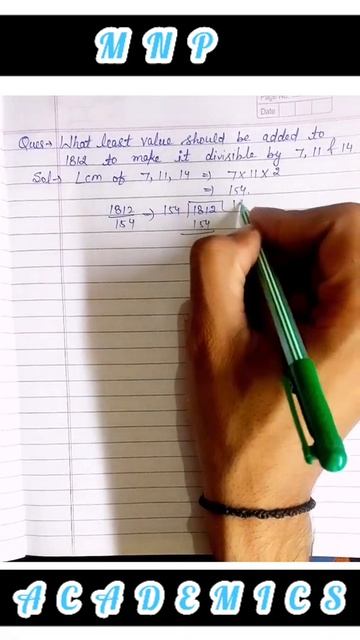 MNP
Page No.
Date
Ques→ What least value should be added to
1812 to make it divisible by 7, 11 & 14
Sol→ Lcm of 7, 11, 14 ⇒ 7×11×2
⇒ 154.
1812/154 ⇒ 154 | 1812 | 1
154
ACADEMICS